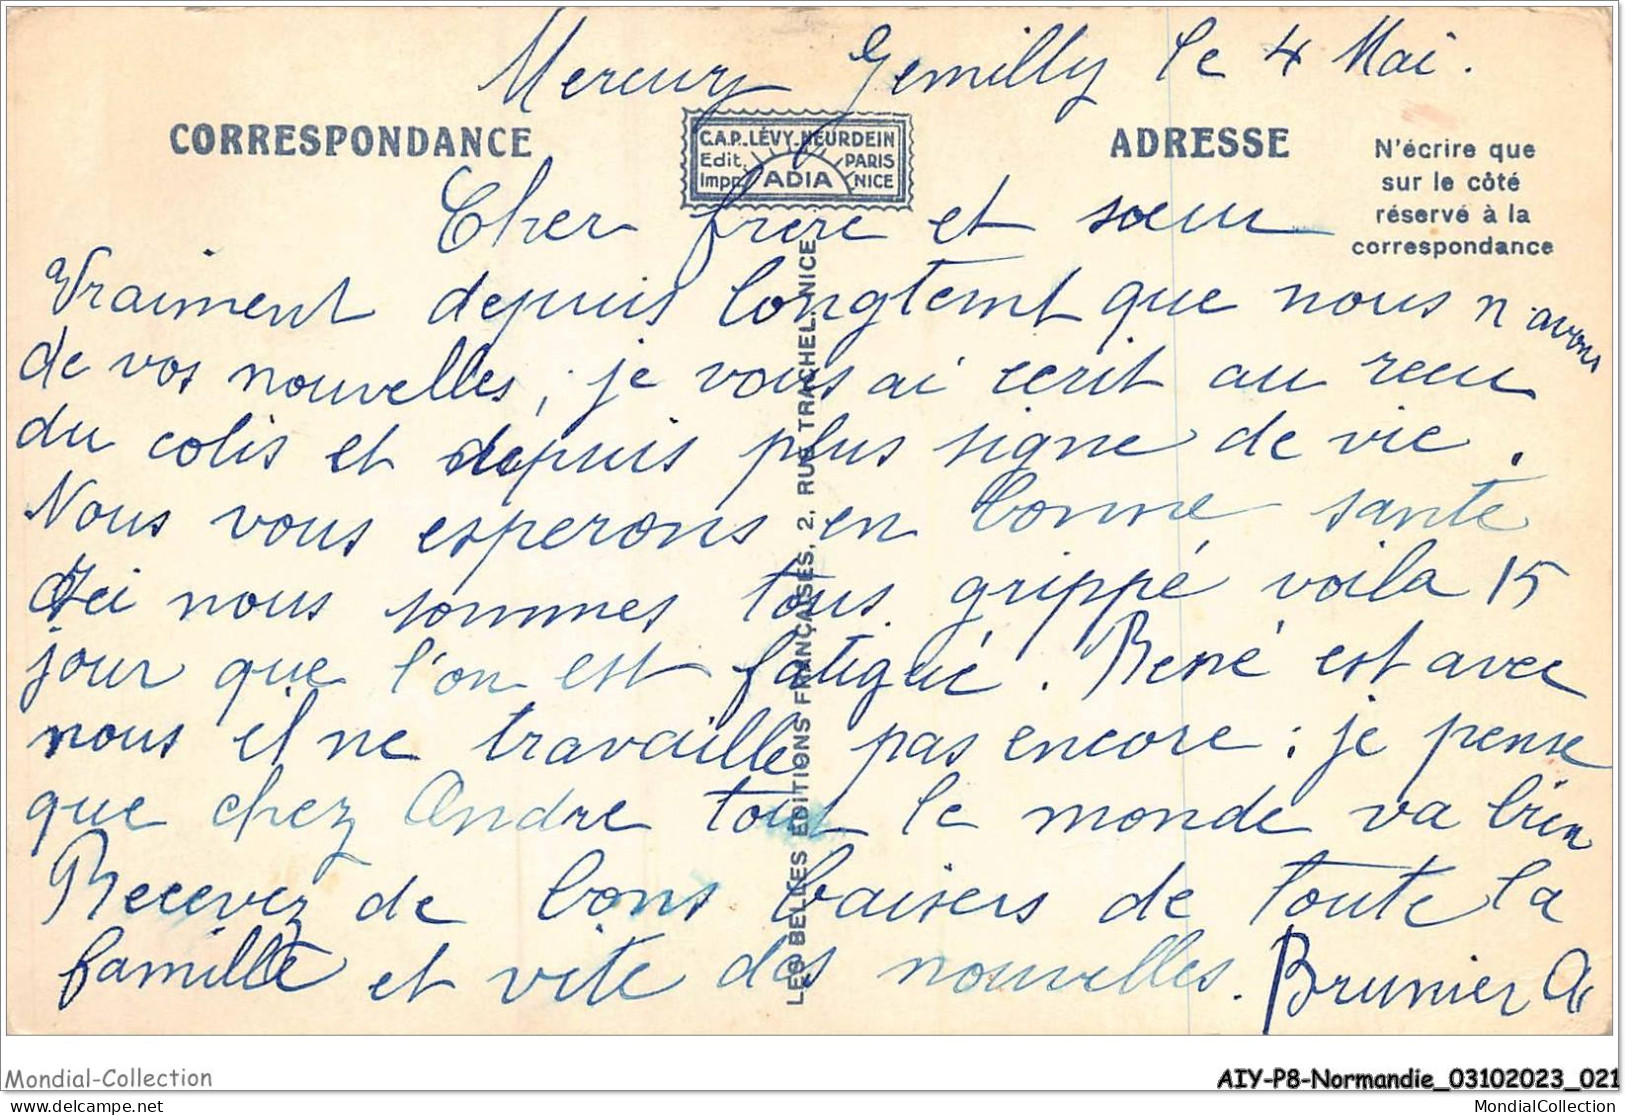 Mercury Gemilly le 4 Mai.
CORRESPONDANCE
C.A.P. LÉVY-NEURDEIN
Edit. PARIS
Impr. ADIA NICE
ADRESSE
N'écrire que
sur le côté
réservé à la
correspondance
Cher frère et sœur
Vraiment depuis longtemt que nous n'avons
de vos nouvelles, je vous ai ecrit au recu
du colis et depuis plus signe de vie.
Nous vous esperons en bonne sante
Ici nous sommes tous grippé voila 15
jour que l'on est fatigué. René est avec
nous il ne travaille pas encore : je pense
que chez Andre tout le monde va bien
Recevez de bons baisers de toute la
famille et vite des nouvelles. Brunier A
LES BELLES ÉDITIONS FRANÇAISES, 2, RUE TRACHEL. NICE
Mondial-Collection
AIY-P8-Normandie_03102023_021
delcampe.net
MondialCollection